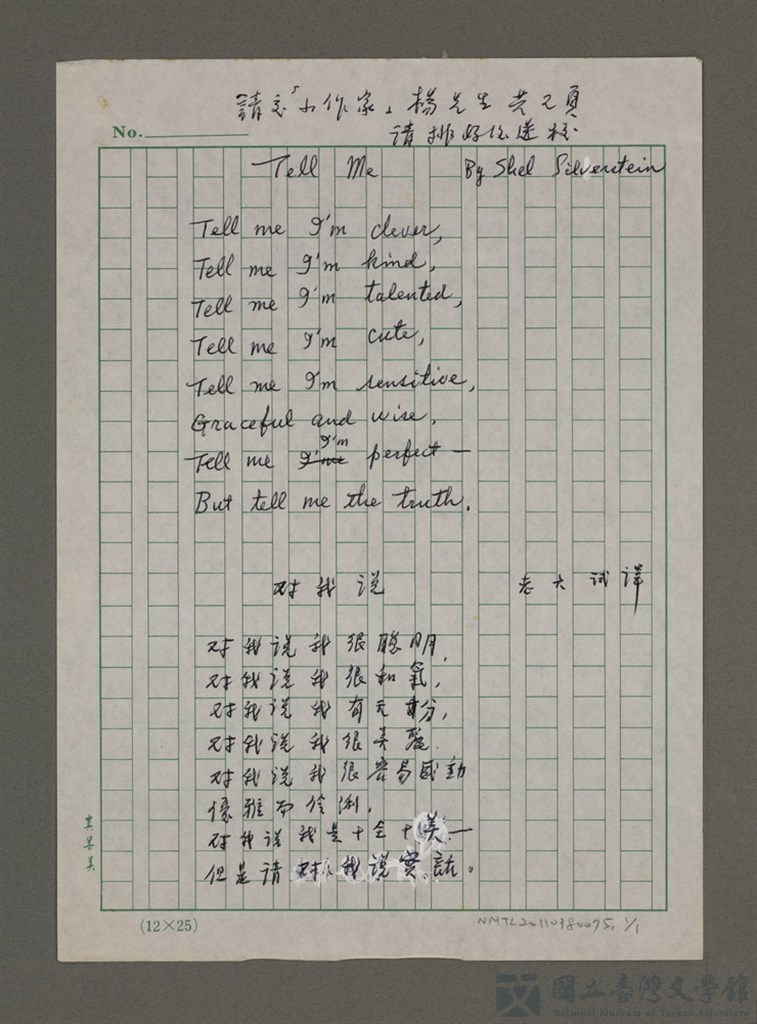 請交「小作家」楊先生
No.
请排好后送校
Tell Me By Shel Silverstein
Tell me I'm clever,
Tell me I'm kind,
Tell me I'm talented,
Tell me I'm cute,
Tell me I'm sensitive,
Graceful and wise,
I'm
Tell me perfect—
But tell me the truth.
对我说 老大试譯
对我说我很聪明,
对我说我很和氣,
对我说我有天份,
对我说我很美麗.
对我说我很容易感動
優雅而伶俐.
对我说我是十全十美—
但是请对我说實話。
真善美
(12×25)
NMTL20110380075, 1/1
國立臺灣文學館
National Museum of Taiwan Literature